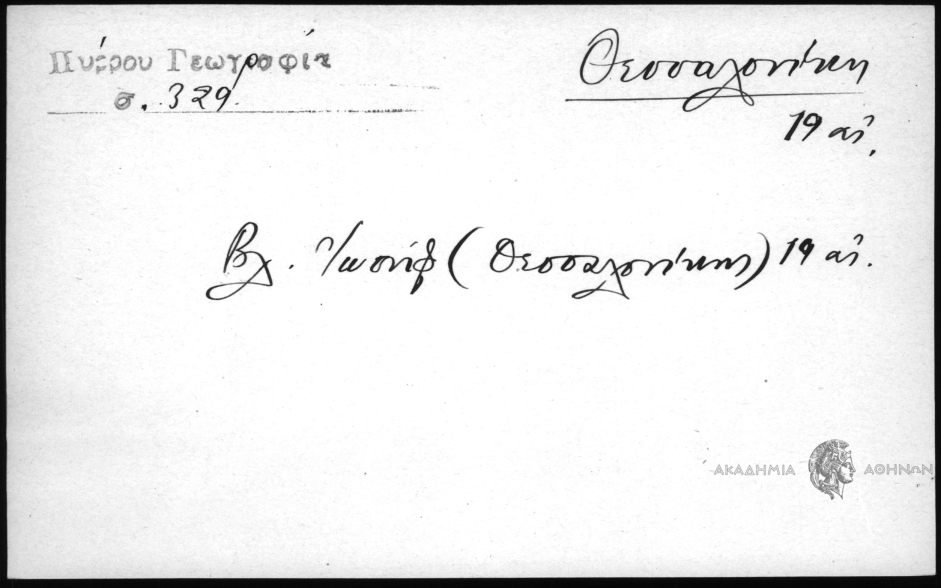 Πύρρου Γεωγραφία
σ. 329.
Θεσσαλονίκη
19 αἰ.
Βλ. Ἰωσήφ (Θεσσαλονίκης) 19 αἰ.
ΑΚΑΔΗΜΙΑ ΑΘΗΝΩΝ